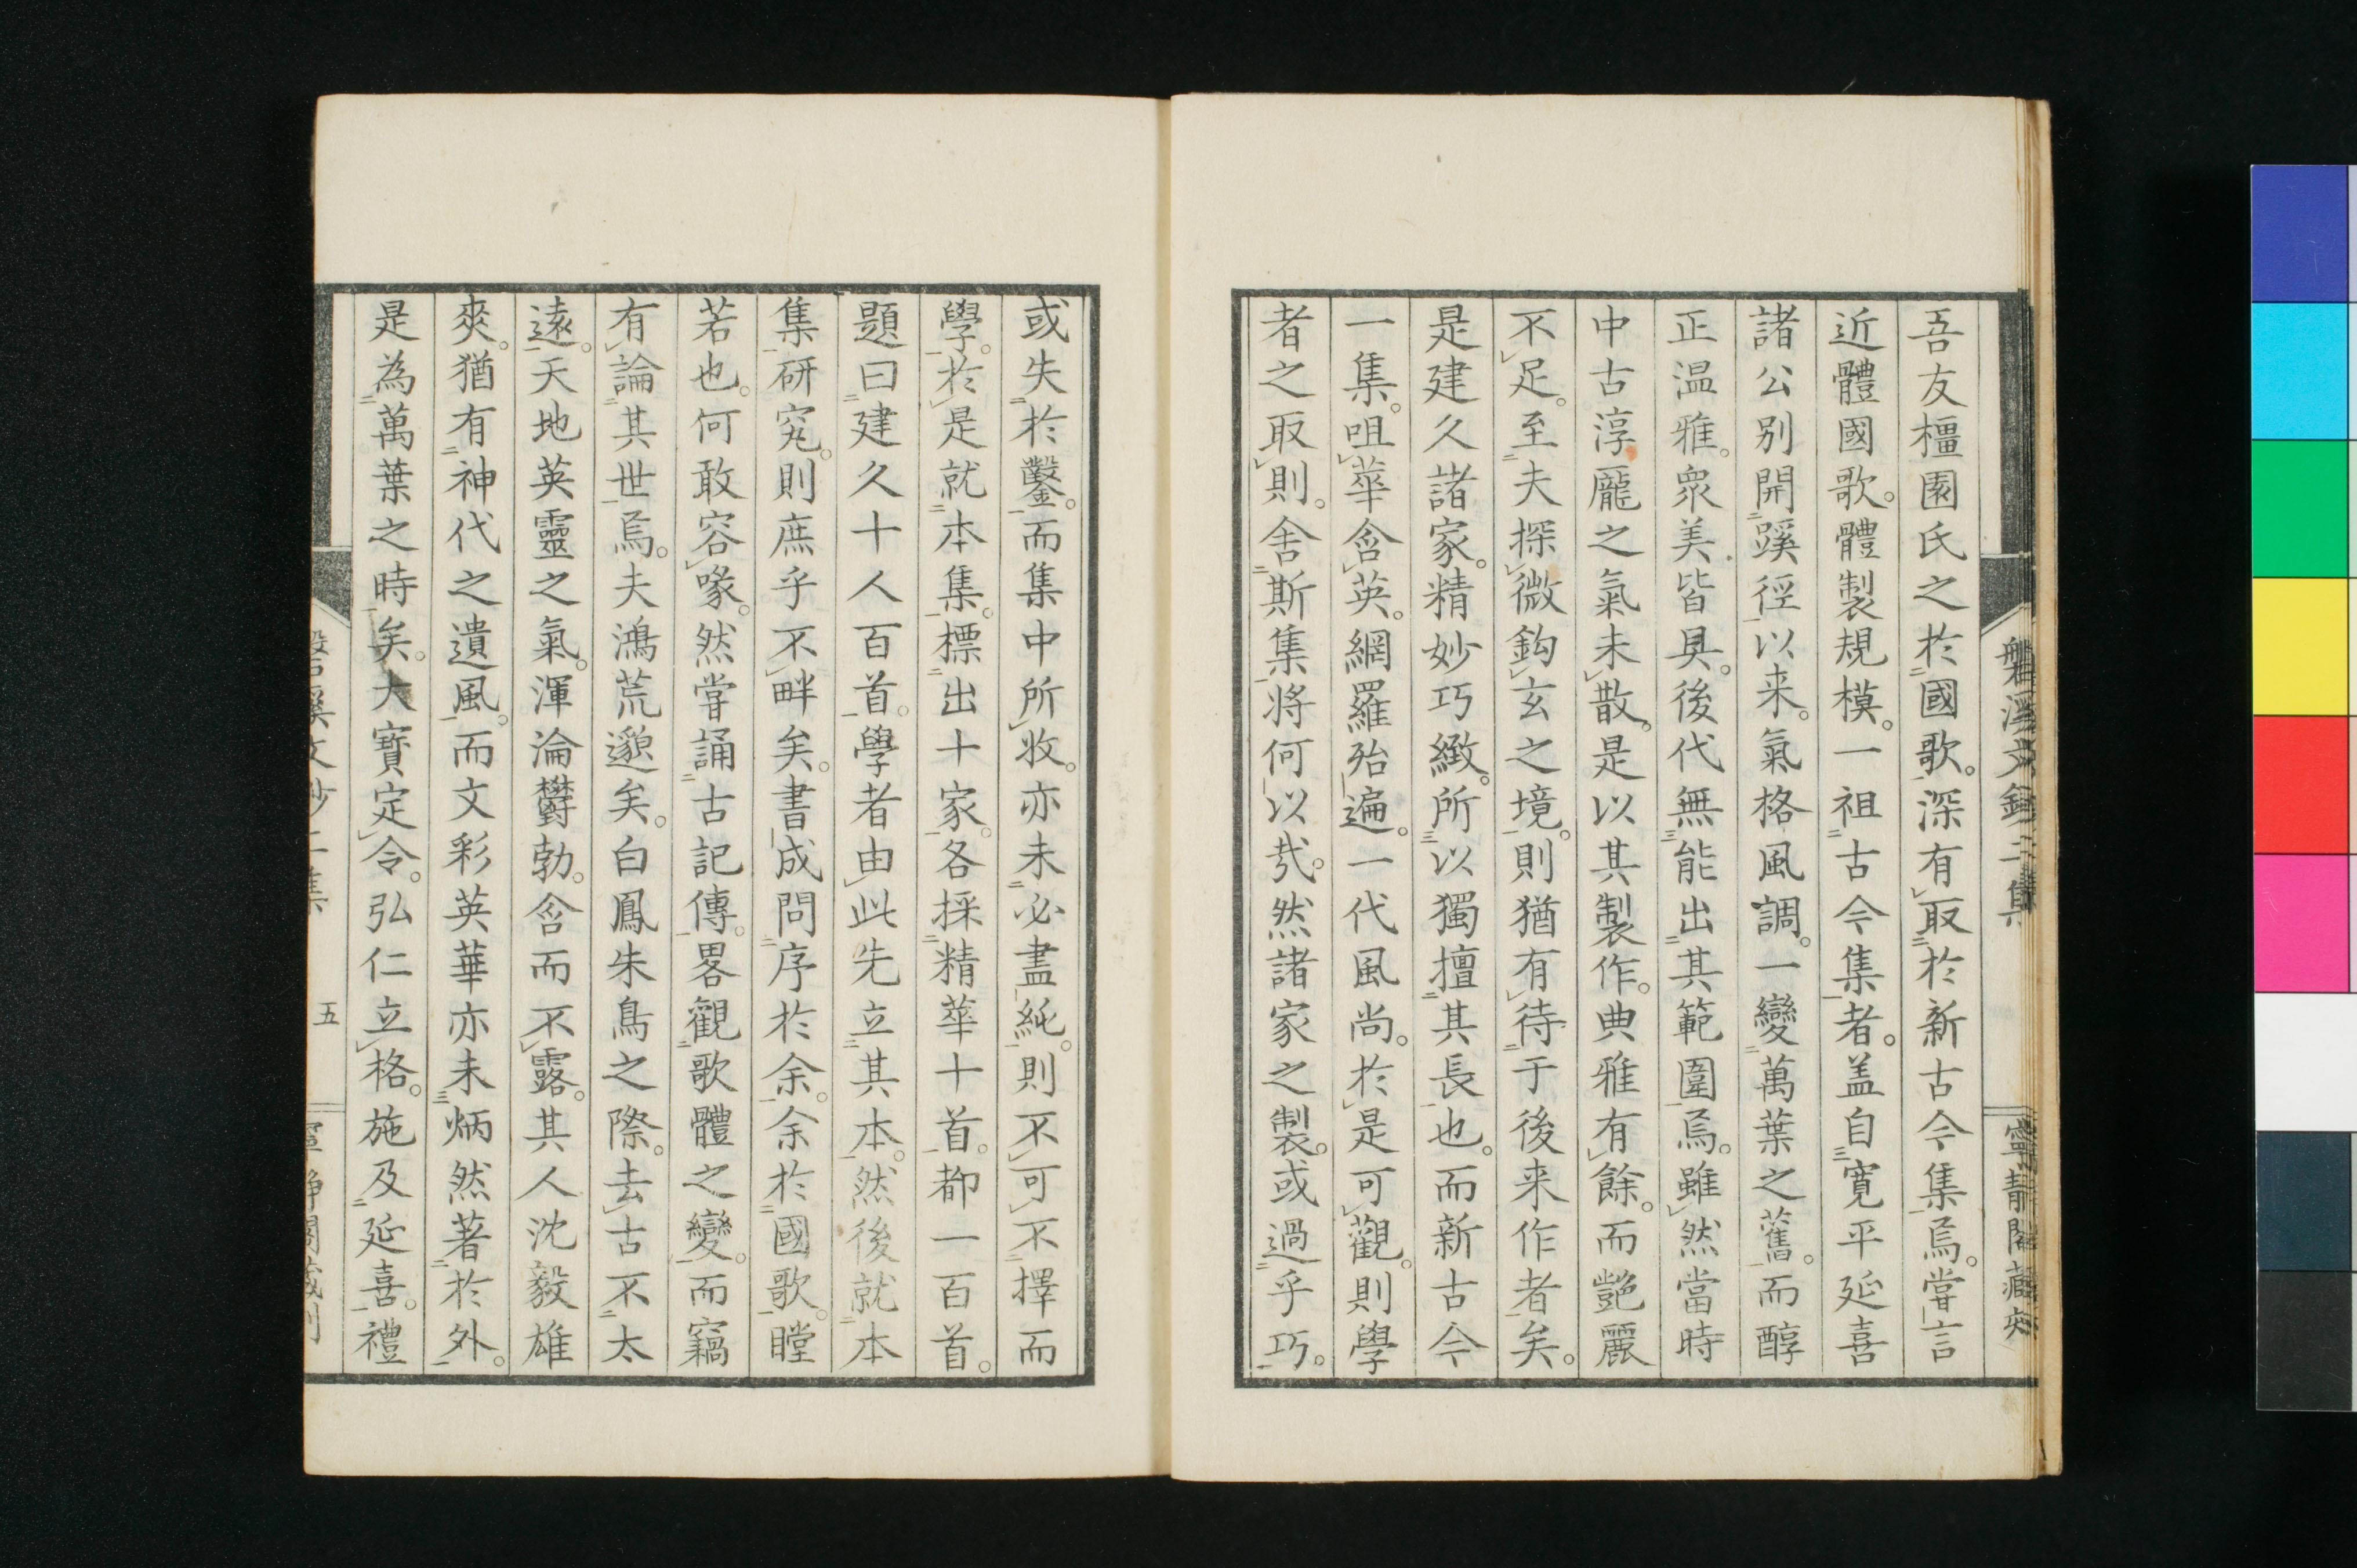 吾友橿園氏之於國歌。深有取於新古今集焉。嘗言
近體國歌。體製規模。一祖古今集者。盖自寛平延喜
諸公別開蹊徑以来。氣格風調。一變萬葉之舊。而醇
正温雅。衆美皆具。後代無能出其範圍焉。雖然當時
中古淳龐之氣未散。是以其製作。典雅有餘。而豔麗
不足。至夫探微鈎玄之境。則猶有待于後来作者矣。
是建久諸家。精妙巧緻。所以獨擅其長也。而新古今
一集。咀華含英。網羅殆遍。一代風尚。於是可觀。則學
者之取則。舍斯集將何以哉。然諸家之製。或過乎巧。
或失於鑿。而集中所收。亦未必盡純。則不可不擇而
學。於是就本集。標出十家。各採精華十首。都一百首。
題曰建久十人百首。學者由此先立其本。然後就本
集研究。則庶乎不畔矣。書成問序於余。余於國歌。瞠
若也。何敢容喙。然嘗誦古記傳。畧觀歌體之變。而竊
有論其世焉。夫鴻荒邈矣。白鳳朱鳥之際。去古不太
遠。天地英靈之氣。渾淪欝勃。含而不露。其人沈毅雄
爽。猶有神代之遺風。而文彩英華亦未炳然著於外。
是為萬葉之時矣。大寳定令。弘仁立格。施及延喜。禮
磐溪文鈔二集
五
寧靜閣藏